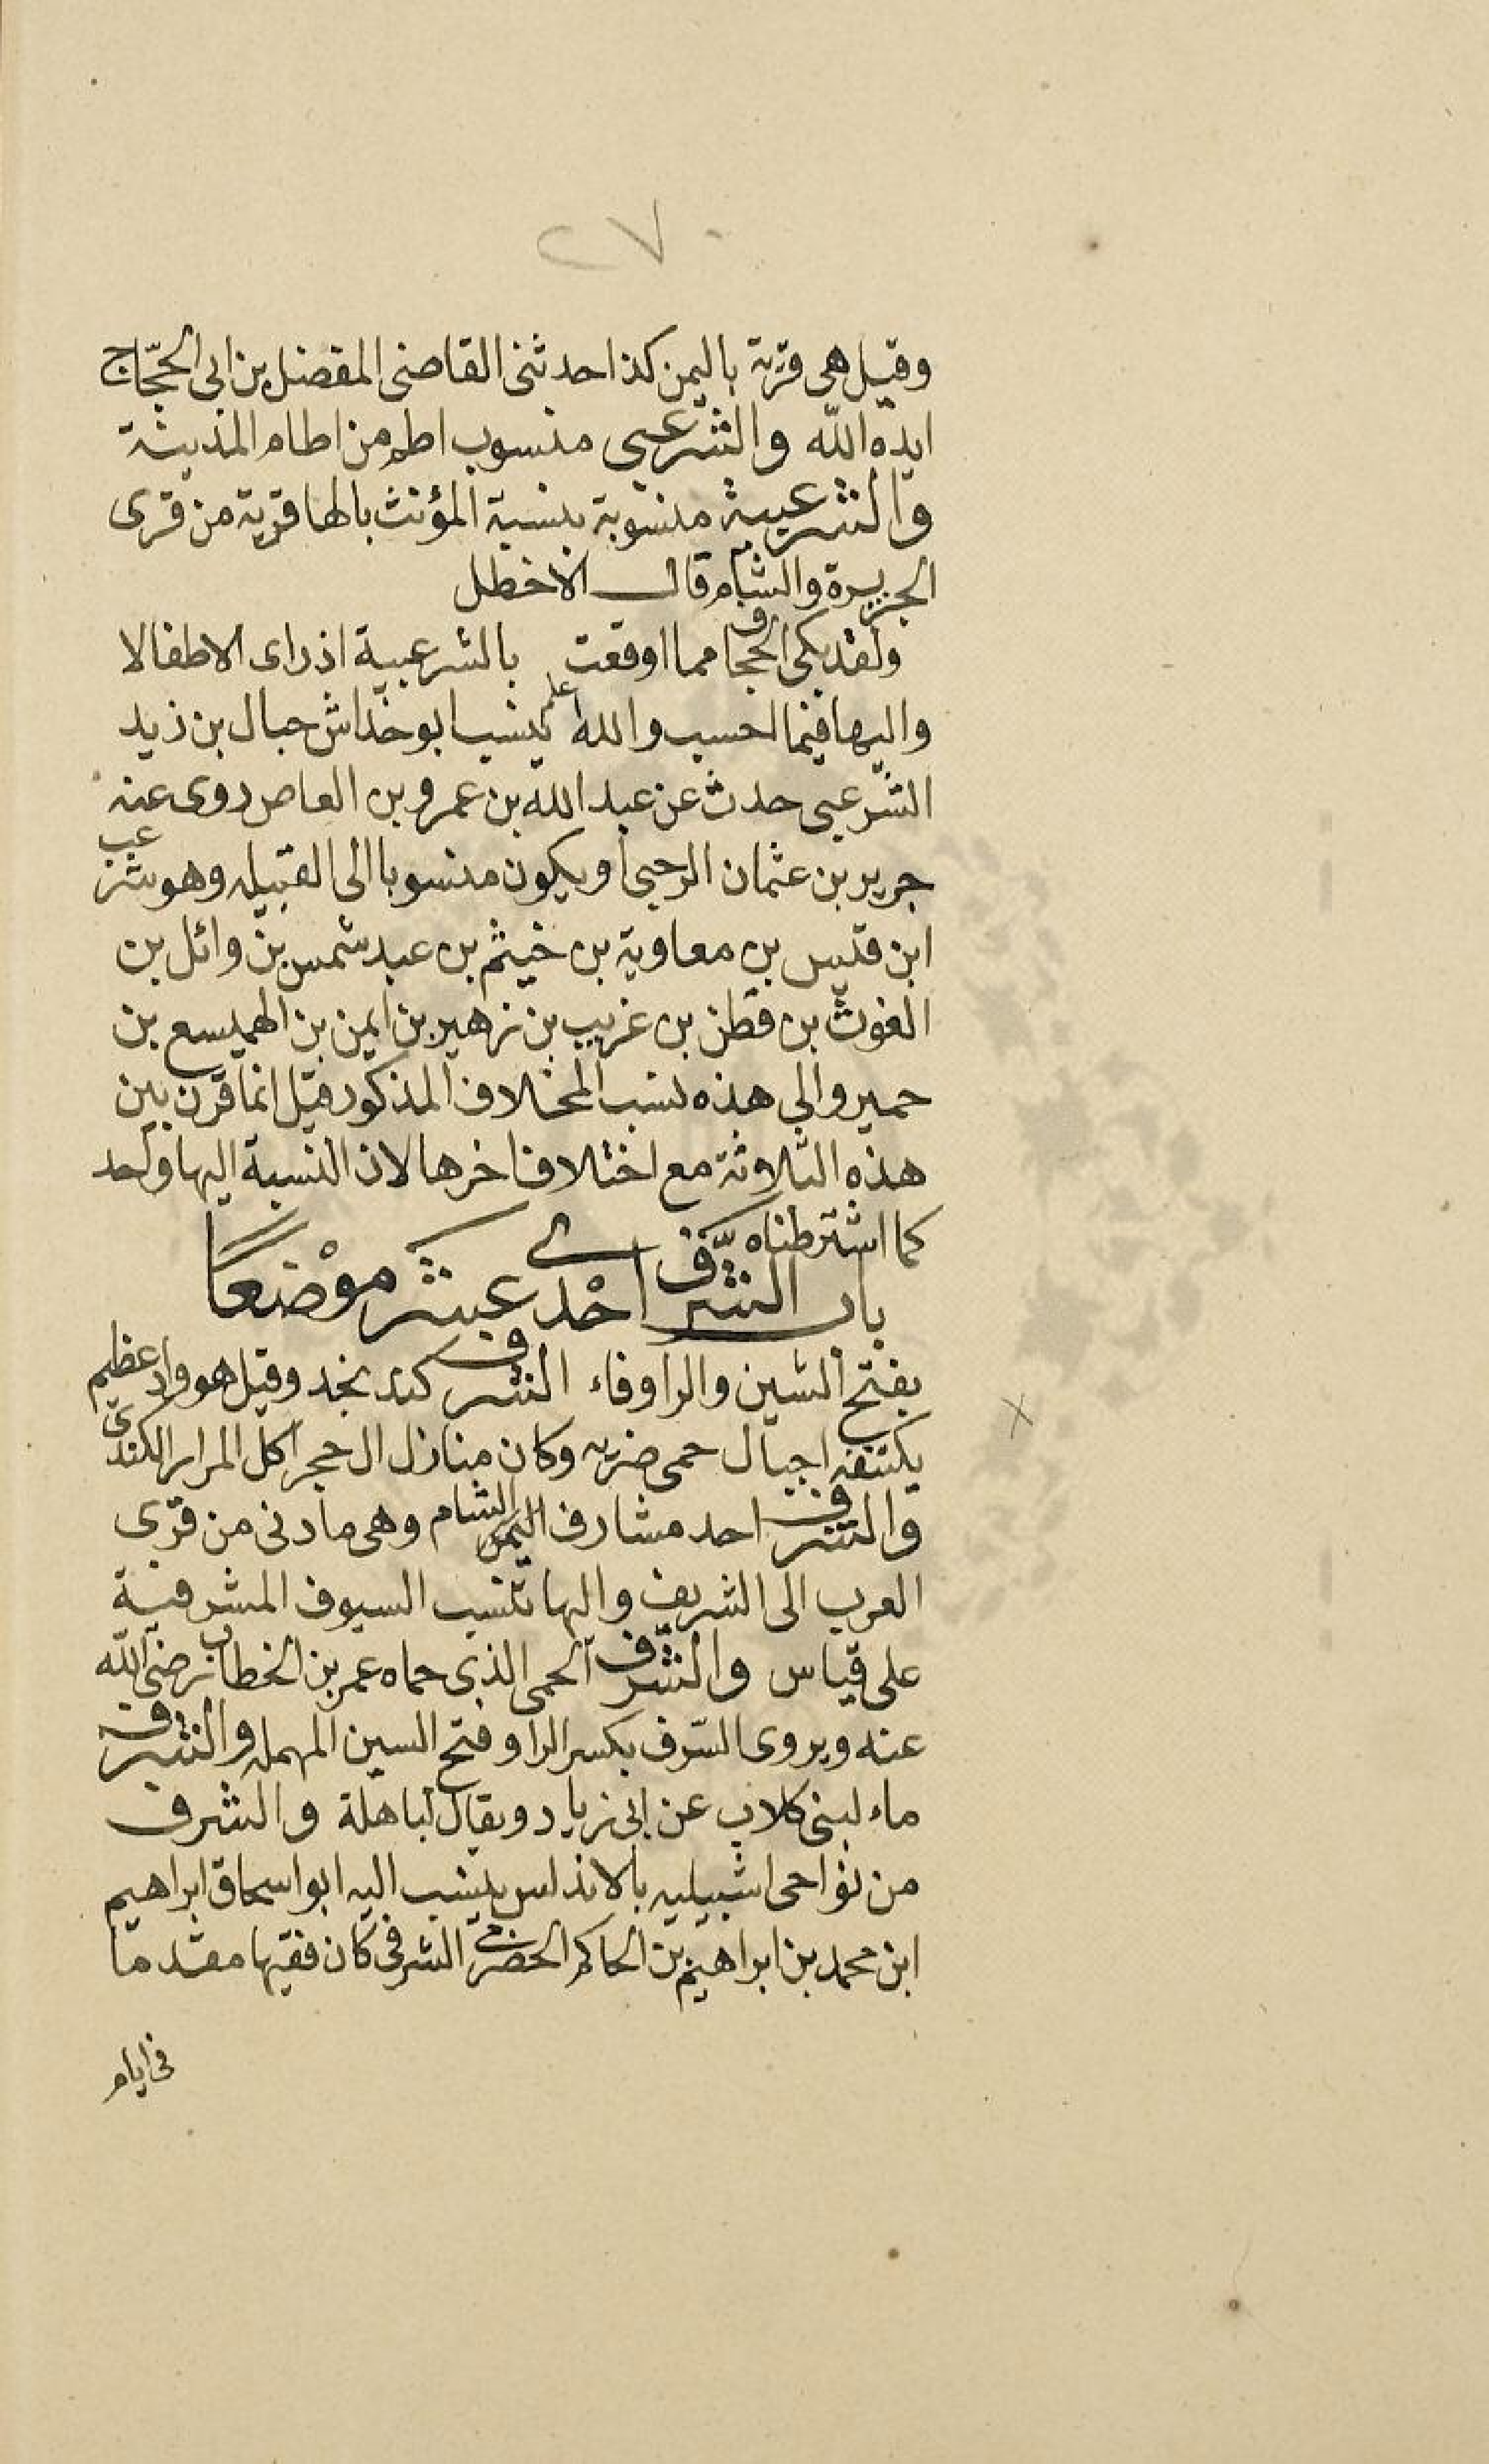 ٢٧٠
وقيل هى قرية باليمن كذا حدثنى القاضى المفضل بن ابى الحجّاج
ايده الله والشرعبى منسوب اطم من اطام المدينة
والشرعبية منسوبة بنسبة المؤنث بالها قرية من قرى
الجزيرة والشام قال الاخطل
ولقد بكى الجحاف مما اوقعت بالشرعبية اذ راى الاطفالا
واليها فيما احسب والله اعلم ينسب ابو خداش حبال بن زيد
الشرعبى حدث عن عبد الله بن عمرو بن العاص روى عنه
جرير بن عثمان الرحبى او يكون منسوبا الى القبيله وهو شرعب
ابن قيس بن معاوية بن خيثم بن عبد شمس بن وائل بن
الغوث بن قطن بن غريب بن زهير بن ايمن بن الهميسع بن
حمير والى هذه نسب المخلاف المذكور قيل انما قرن بين
هذه الثلاثة مع اختلاف اخرها لان النسبة اليها واحد
كما اشترطناه
باب الشّرف احْدى عشر موْضعًا
بفتح الشين والرا وفاء الشرف كبد نجد وقيل هو واد عظيم
يكتنفه اجبال حمى ضريه وكان منازل ال حجر اكل المرار الكندى
والشرف احد مشارف الشام وهى ما دنى من قرى
العرب الى الشريف واليها تنسب السيوف المشرفية
على قياس والشّرف الحمى الذى حماه عمر بن الخطاب رضى الله
عنه ويروى السّرف بكسر الرا وفتح السين المهمله والشرف
ماء لبنى كلاب عن ابى زياد ويقال لباهلة والشرف
من نواحى اشبيليه بالاندلس ينسب اليه ابو اسحاق ابراهيم
ابن محمد بن ابراهيم بن الحاكم الحضرمى الشرفى كان فقيها مقدما
فى ايام